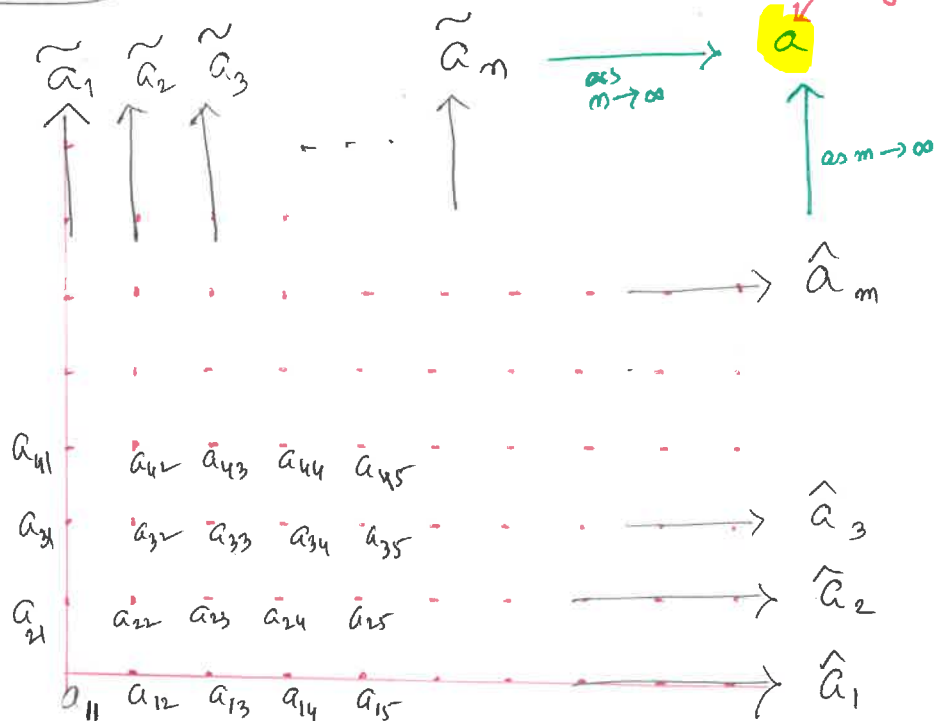 ã₁ ã₂ ã₃ ãₙ as n→∞ a
as m→∞
âₘ
a₄₁ a₄₂ a₄₃ a₄₄ a₄₅
a₃₁ a₃₂ a₃₃ a₃₄ a₃₅ â₃
a₂₁ a₂₂ a₂₃ a₂₄ a₂₅ â₂
a₁₁ a₁₂ a₁₃ a₁₄ a₁₅ â₁